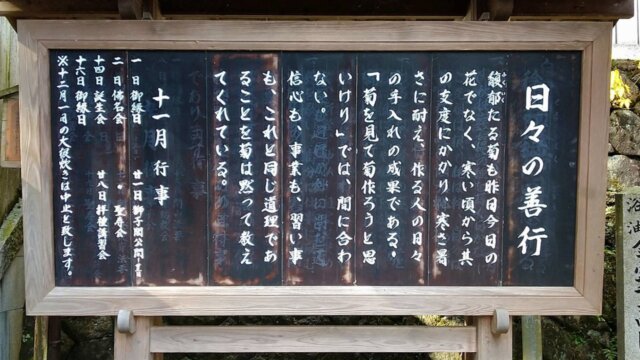 日々の善行
馥郁たる菊も昨日今日の
花でなく、寒い頃から其
の支度にかかり、寒さ暑
さに耐え、作る人の日々
の手入れの成果である。
「菊を見て菊作ろうと思
いけり」では、間に合わ
ない。
信心も、事業も、習い事
も、これと同じ道理であ
ることを菊は黙って教え
てくれている。
十一月 行事
一日 御縁日
二日 佛名会
十四日 誕生会
十六日 御縁日
廿一日 獅子閣公開
聖寿会
廿八日 詳種講習会
※十二月一日の大根焚きは中止と致します。